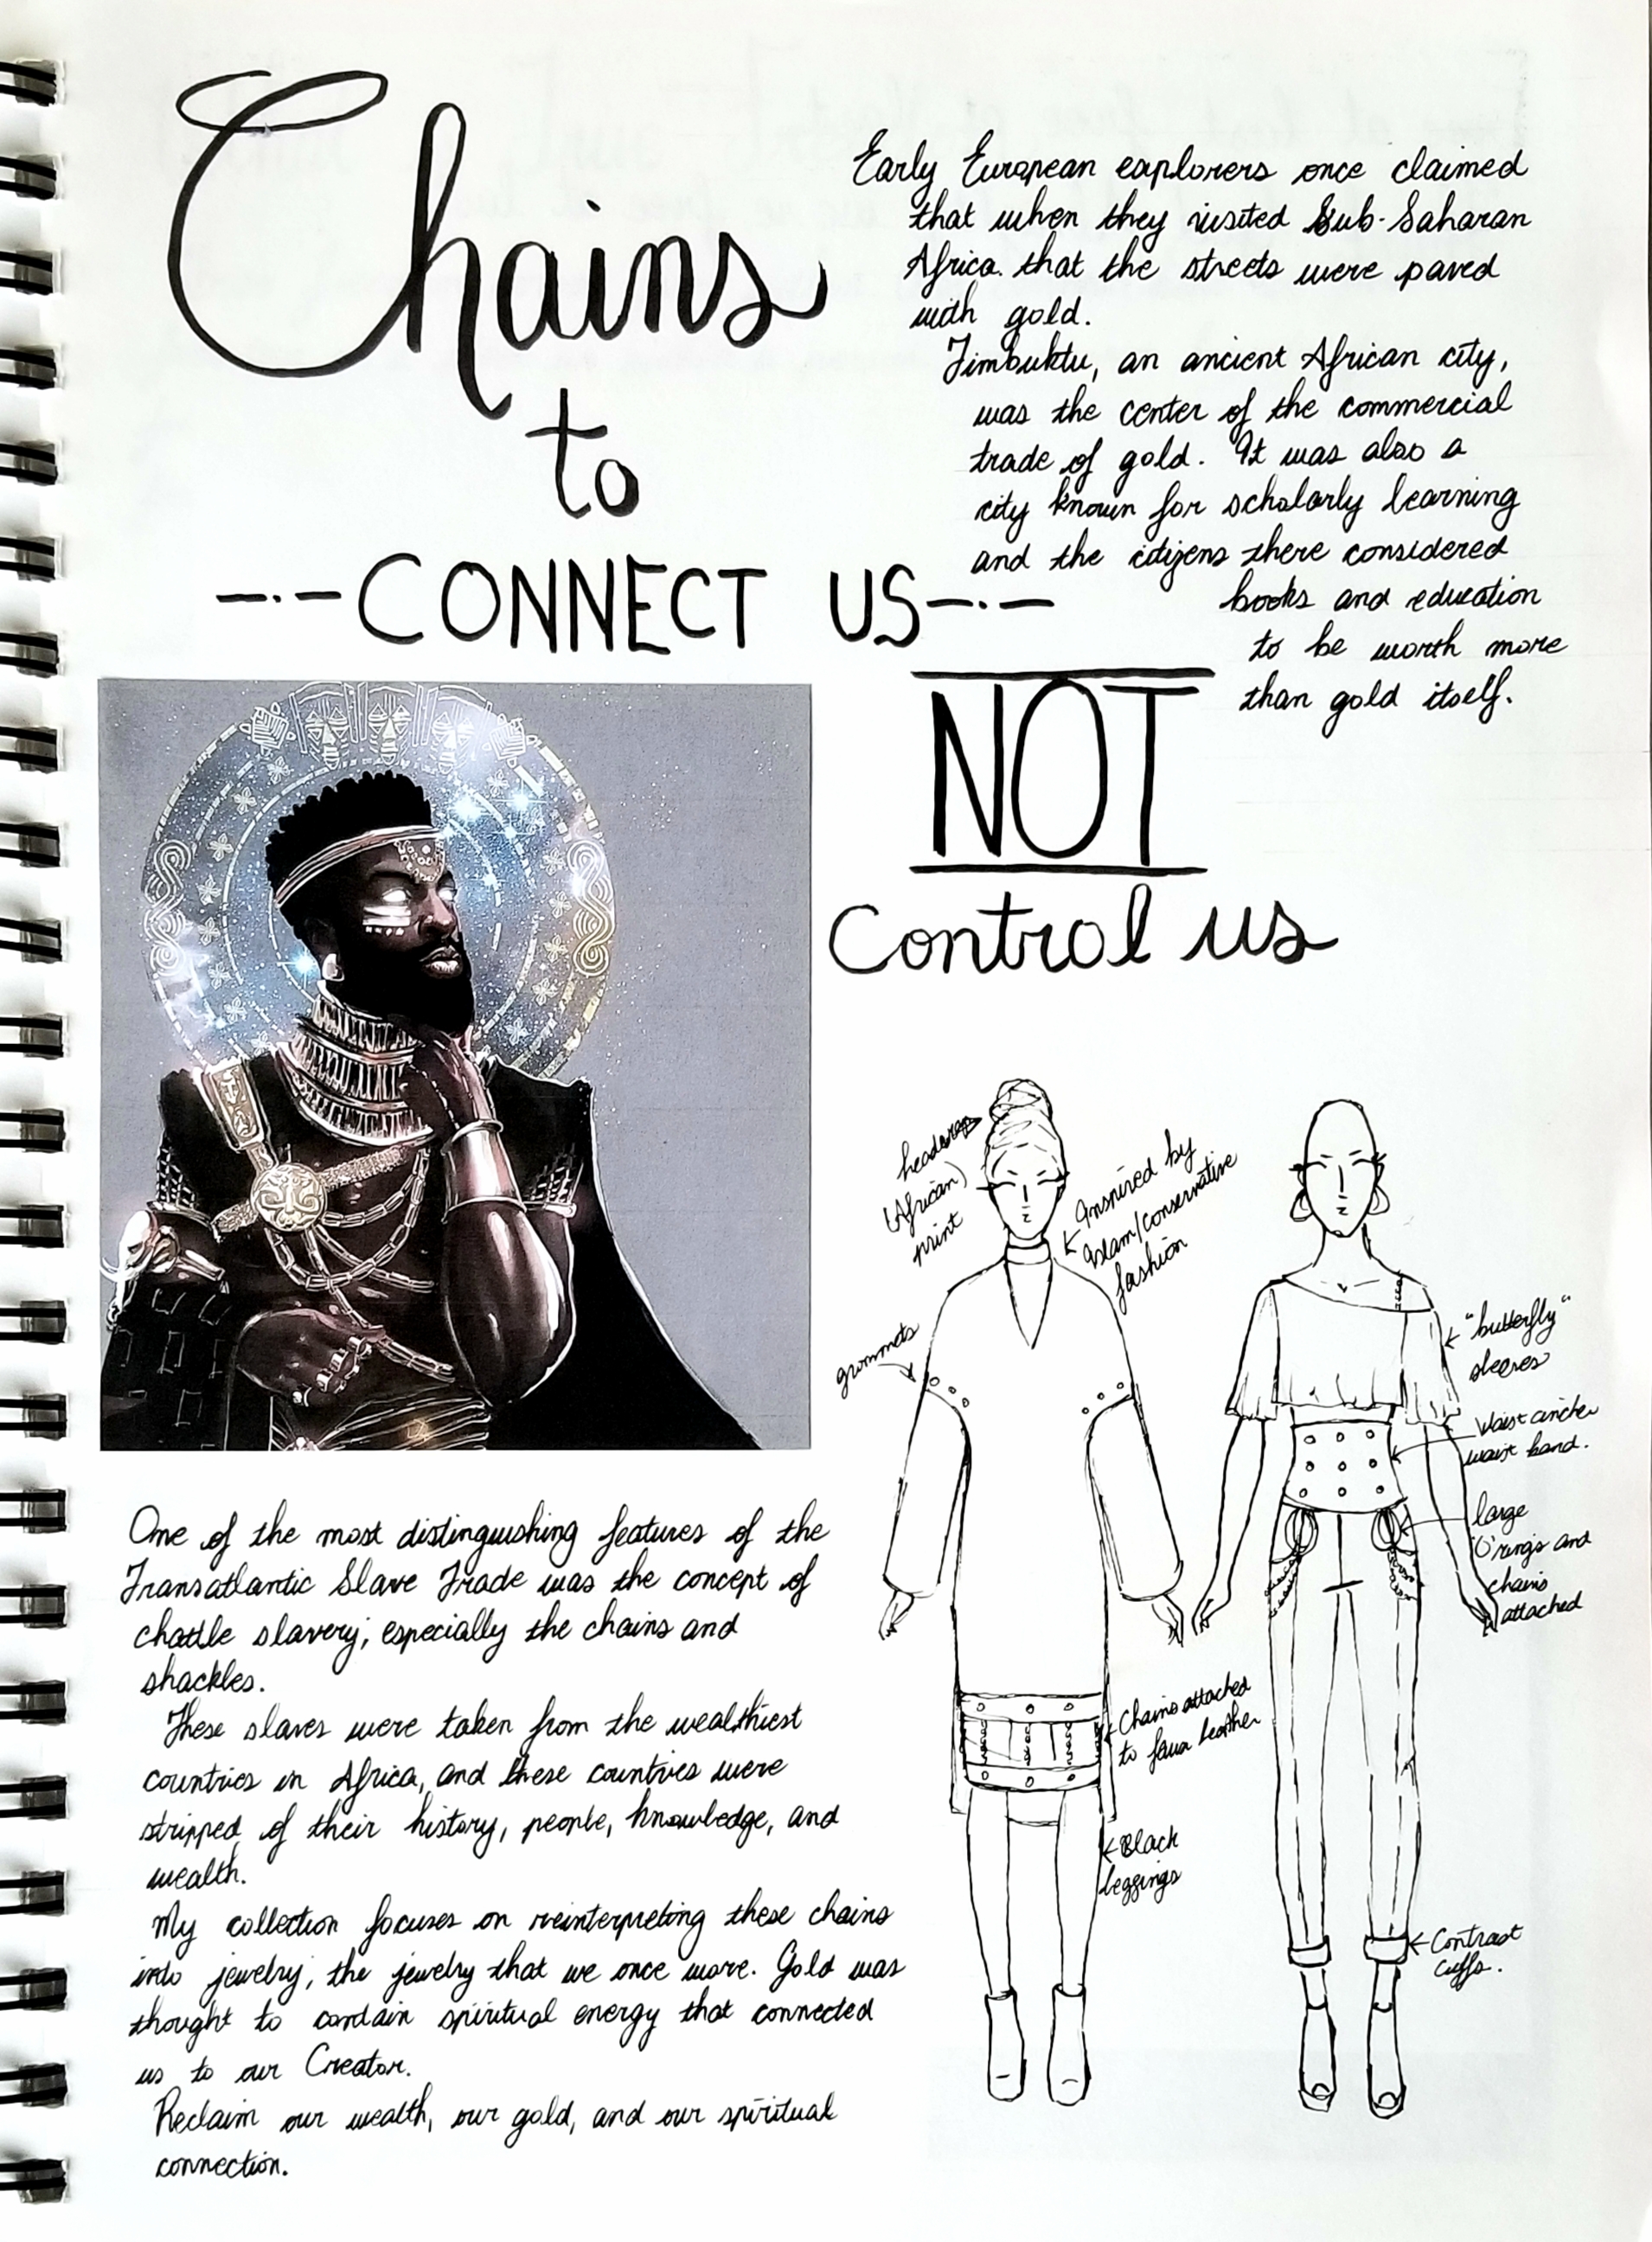 Chains
to
-·-CONNECT US-·-
NOT
Control us
Early European explorers once claimed
that when they visited Sub-Saharan
Africa. that the streets were paved
with gold.
Timbuktu, an ancient African city,
was the center of the commercial
trade of gold. It was also a
city known for scholarly learning
and the citizens there considered
books and education
to be worth more
than gold itself.
One of the most distinguishing features of the
Transatlantic Slave Trade was the concept of
chattle slavery; especially the chains and
shackles.
These slaves were taken from the wealthiest
countries in Africa, and these countries were
stripped of their history, people, knowledge, and
wealth.
My collection focuses on reinterpreting these chains
into jewelry; the jewelry that we once wore. Gold was
thought to contain spiritual energy that connected
us to our Creator.
Reclaim our wealth, our gold, and our spiritual
connection.
headwrap
(African)
print
Inspired by
Islam/conservative
fashion
grommets
Chains attached
to faux leather
Black
leggings
"butterfly"
sleeves
Waist cincher
waist band.
large
'O'rings and
chains
attached
Contrast
cuffs.